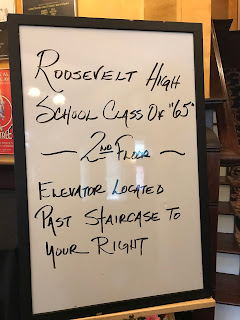 ROOSEVELT HIGH
SCHOOL CLASS OF "65"
— 2ND FLOOR —
ELEVATOR LOCATED
PAST STAIRCASE TO
YOUR RIGHT